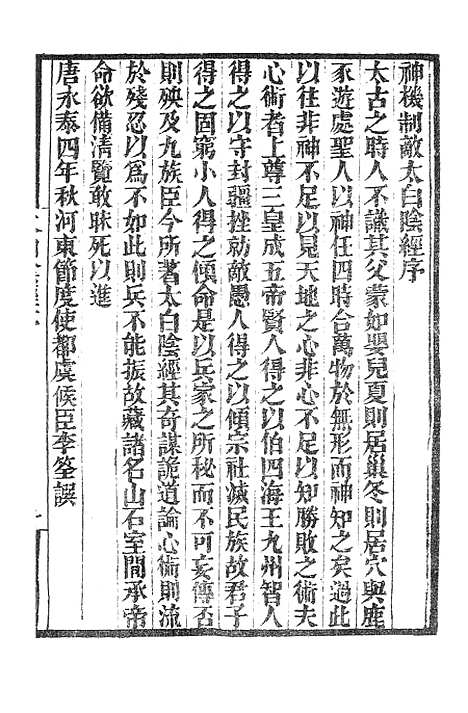 神機制敵太白陰經序
太古之時人不識其父蒙如嬰兒夏則居巢冬則居穴與鹿
豕遊處聖人以神任四時合萬物於無形而神知之矣過此
以往非神不足以見天地之心非心不足以知勝敗之術夫
心術者上尊三皇成五帝賢人得之以伯四海王九州智人
得之以守封疆挫勍敵愚人得之以傾宗社滅民族故君子
得之固窮小人得之傾命是以兵家之所秘而不可妄傳否
則殃及九族臣今所著太白陰經其奇謀詭道論心術則流
於殘忍以爲不如此則兵不能振故藏諸名山石室間承帝
命欲備清覽敢昧死以進
唐永泰四年秋河東節度使都虞候臣李筌譔